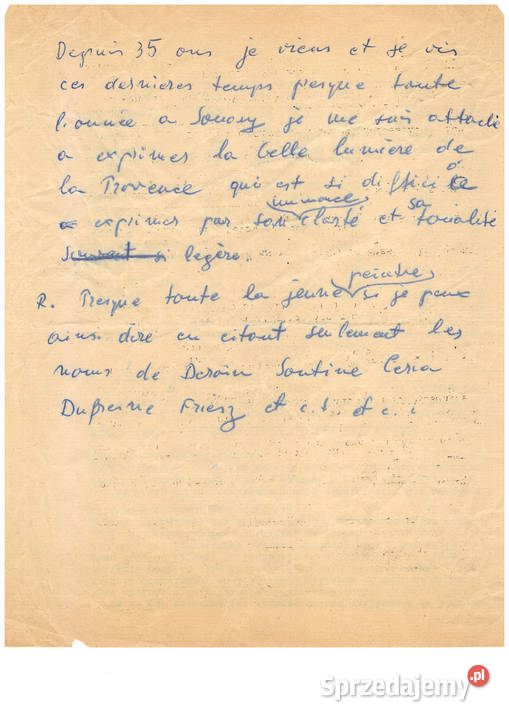 Depuis 35 ans je viens et je vis
ces dernieres temps presque toute
l'année a Sanary je me suis attaché
a exprimer la belle lumière de
la Provence qui est si difficile à
exprimer par son immence clarté et sa tonalité
Souvent si legère.
R. Presque toute la jeune peintres si je peux
ainsi dire en citant seulement les
noms de Derain Soutine Ceria
Dufresne Friesz et c.t. et c.
Sprzedajemy.pl